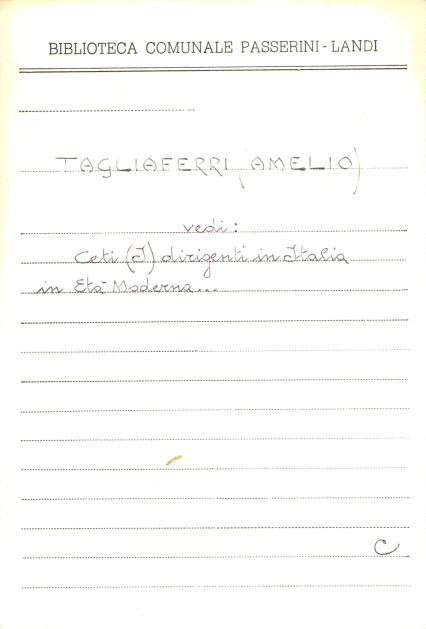 BIBLIOTECA COMUNALE PASSERINI - LANDI
TAGLIAFERRI (AMELIO)
vedi:
Ceti (I) dirigenti in Italia
in Età Moderna...
C